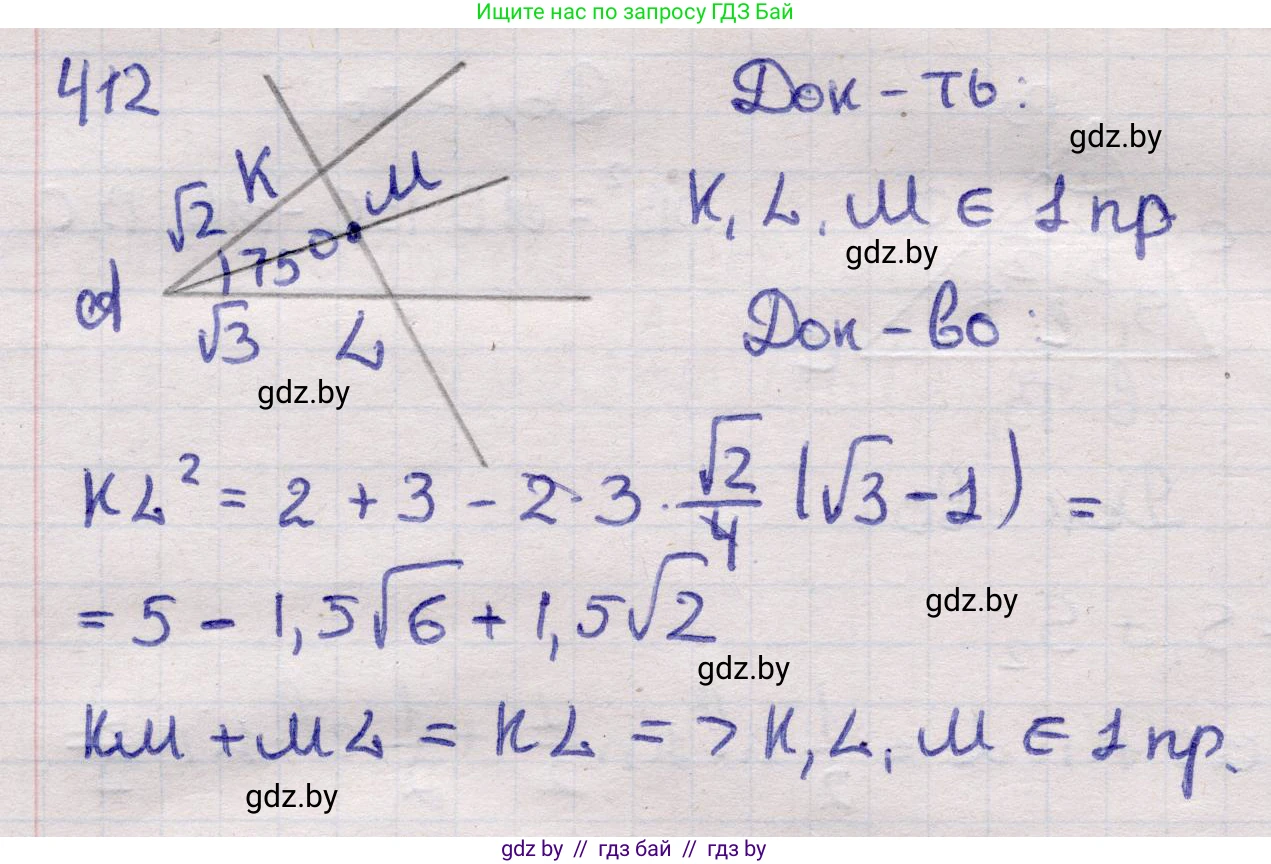 Ищите нас по запросу ГДЗ Бай
412
Док-ть:
gdz.by
K
M
√2
K, L, M ∈ 1 пр
gdz.by
75°
A
√3
L
Док-во:
gdz.by
KL² = 2 + 3 - 2·3·√2/4 (√3-1) =
= 5 - 1,5√6 + 1,5√2
gdz.by
gdz.by
KM + ML = KL => K, L, M ∈ 1 пр.
gdz.by
gdz by // гдз бай // гдз by